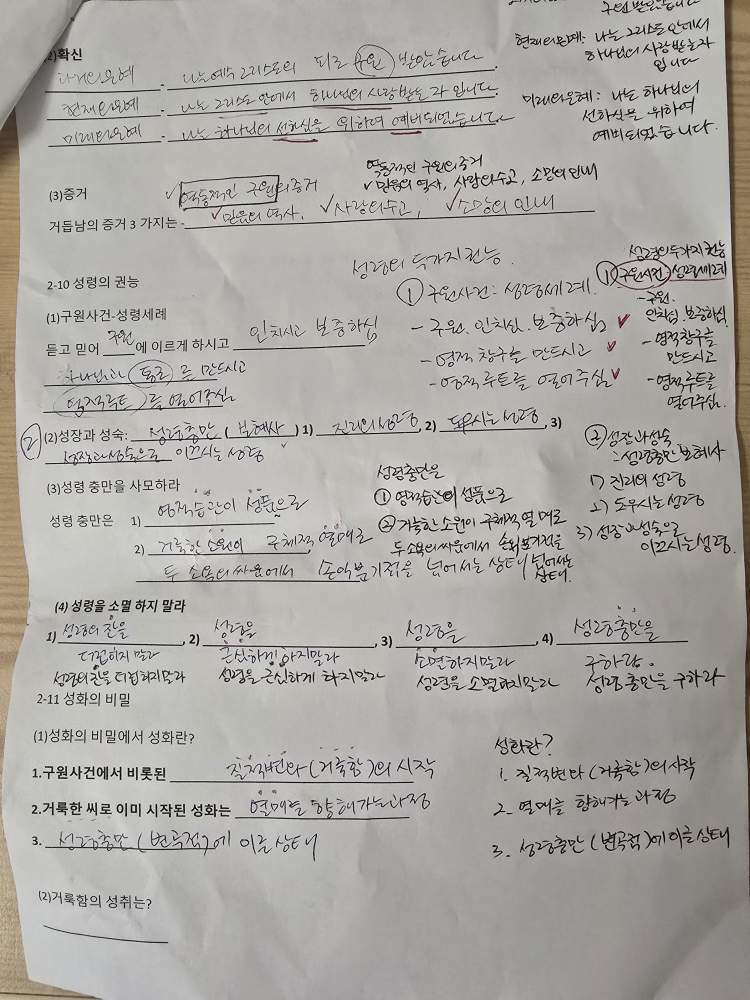 구원 받았습니다
현재의은혜: 나는 그리스도 안에서
하나님의 사랑받는자
입니다
미래의은혜: 나는 하나님의
선하심을 위하여
예비되었습니다.
(2)확신
과거의은혜 - 나는 예수 그리스도의 피로 구원 받았습니다.
현재의은혜 - 나는 그리스도 안에서 하나님의 사랑받는 자 입니다.
미래의은혜 - 나는 하나님의 선하심을 위하여 예비되었습니다.
(3)증거
✓역동적인 구원의증거
역동적인 구원의증거
✓믿음의 역사, 사랑의수고, 소망의 인내
거듭남의 증거 3 가지는 - ✓믿음의 역사, ✓사랑의수고, ✓소망의 인내
2-10 성령의 권능
성령의 두가지 권능.
(1)구원사건-성령세례
듣고 믿어 구원에 이르게 하시고 인치시고 보증하심
하나님과 통로 를 만드시고
영적루트 를 열어주심
① 구원사건: 성령세례.
- 구원. 인치심. 보증하심 ✓
- 영적 창구를 만드시고 ✓
- 영적 루트를 열어주심 ✓
성령의두가지 권능
① 구원사건 성령세례
- 구원.
인치심. 보증하심.
- 영적창구를
만드시고
- 영적루트를
열어주심.
② (2)성장과 성숙: 성령충만 (보혜사) 1) 진리의성령, 2) 도우시는 성령, 3)
성장과성숙으로 이끄시는 성령
② 성장과 성숙
: 성령충만 보혜사
1) 진리의 성령
2) 도우시는 성령
3) 성장과성숙으로
이끄시는성령.
(3)성령 충만을 사모하라
성령 충만은 1) 영적습관이 성품으로
2) 거룩한 소원이 구체적 열매로
두 소욕의싸움에서 손익분기점을 넘어서는 상태
성령충만을
① 영적습관이 성품으로
② 거룩한 소원이 구체적 열매로
두 소욕의 싸움에서 손익분기점을
넘어서는
상태.
(4) 성령을 소멸 하지 말라
1) 성령의 잔을, 2) 성령을, 3) 성령을, 4) 성령충만을
더럽히지말라 근심하게 하지말라 소멸하지말라 구하라.
성령의잔을 더럽히지말라 성령을 근심하게 하지말라 성령을 소멸하지말라 성령 충만을 구하라
2-11 성화의 비밀
(1)성화의 비밀에서 성화란?
1.구원사건에서 비롯된 질적변화 (거룩함)의 시작
2.거룩한 씨로 이미 시작된 성화는 열매를 향해가는과정
3. 성령충만 (변곡점)에 이를 상태
성화란?
1. 질적변화 (거룩함)의시작
2. 열매를 향해가는 과정
3. 성령충만 (변곡점)에 이를 상태
(2)거룩함의 성취는?